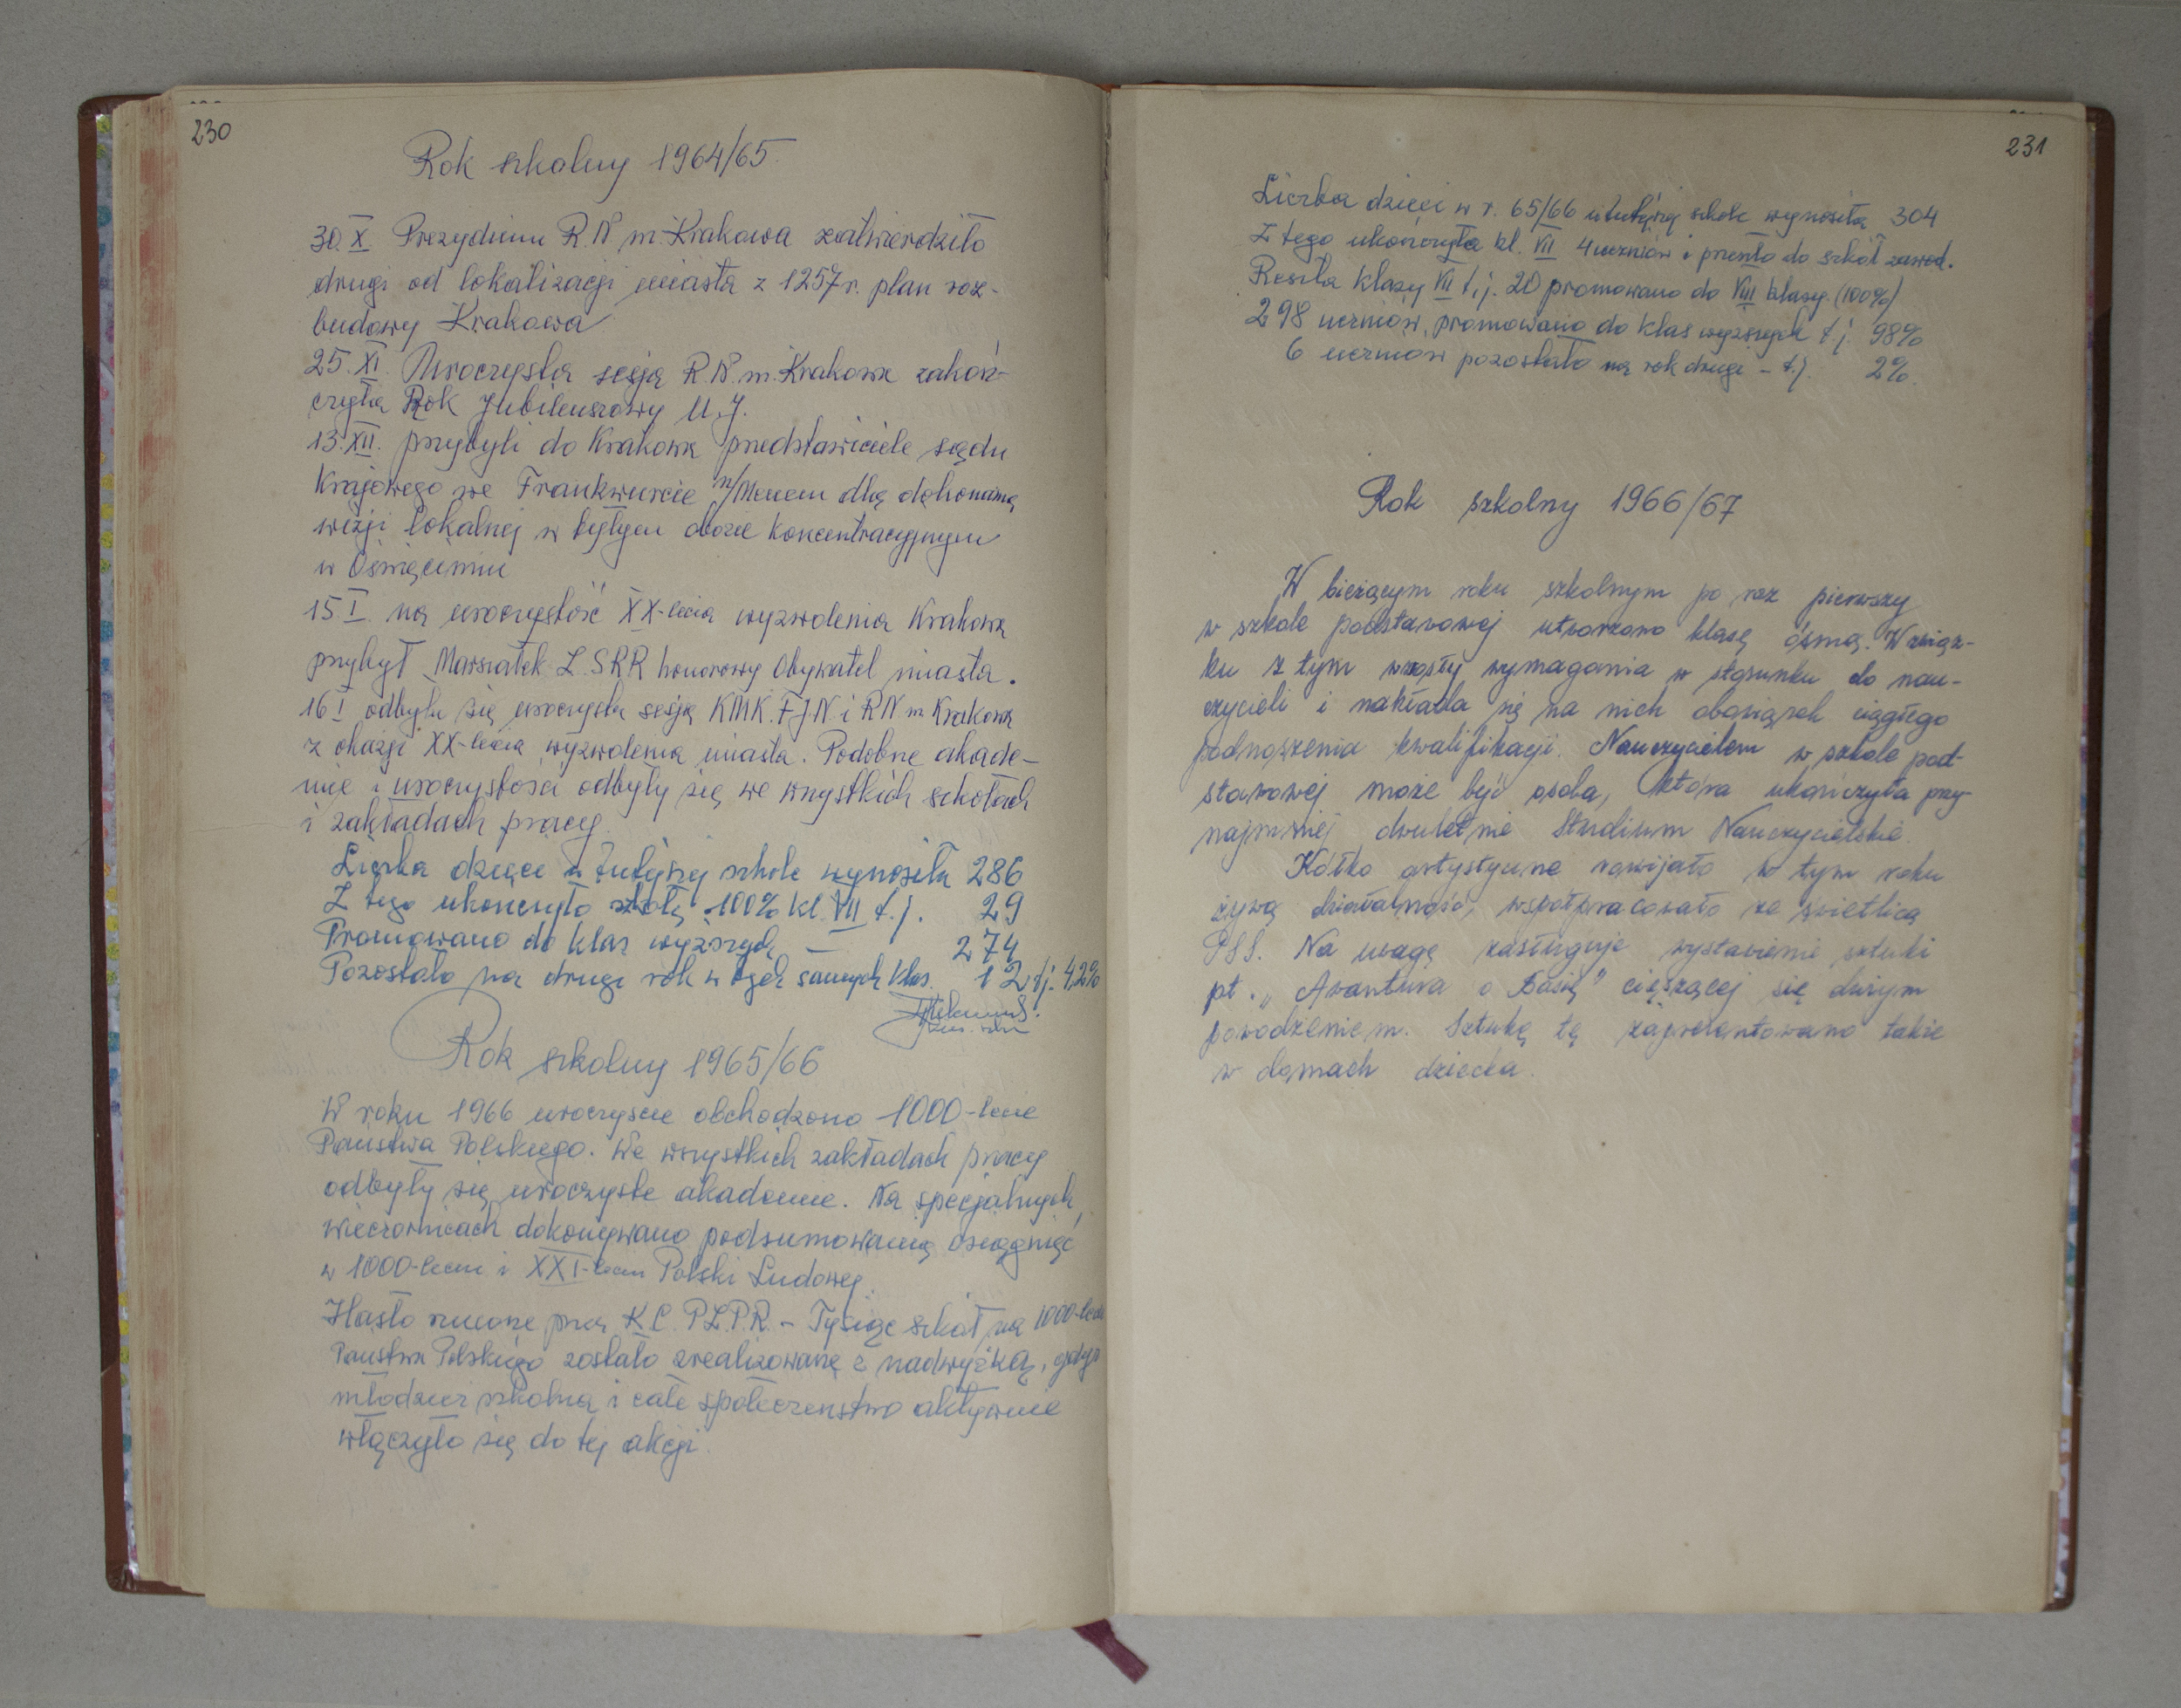 230
Rok szkolny 1964/65
30.X Prezydium R.N m. Krakowa zatwierdziło
drugi od lokalizacji miasta z 1257 r. plan roz-
budowy Krakowa
25.XI. Uroczysta sesja R.N. m. Krakowa zakoń-
czyła Rok Jubileuszowy U.J.
13.XII. przybyli do Krakowa przedstawiciele sądu
Krajowego we Frankwurcie n/Menem dla dokonania
wizji lokalnej w byłym obozie koncentracyjnym
w Oświęcimiu
15 I. na uroczystość XX-lecia wyzwolenia Krakowa
przybył Marszałek Z.SRR honorowy Obywatel miasta.
16 I odbyła się uroczysta sesja KMK. FJN. i RN m Krakowa
z okazji XX-lecia wyzwolenia miasta. Podobne akade-
mie i uroczystości odbyły się we wszystkich szkołach
i zakładach pracy.
Liczba dzieci w tutejszej szkole wynosiła 286
Z tego ukończyło szkołę 100% kl. VII t.j. 29
Promowano do klas wyższych – 274
Pozostało na drugi rok w tych samych klas. 12 tj. 4,2%
Rok szkolny 1965/66
W roku 1966 uroczyście obchodzono 1000-lecie
Państwa Polskiego. We wszystkich zakładach pracy
odbyły się uroczyste akademie. Na specjalnych
wieczornicach dokonywano podsumowania osiągnięć
w 1000-leciu i XXI-leciu Polski Ludowej.
Hasło rzucone przez K.C. P.Z.P.R. – Tysiąc szkół na 1000-lecie
Państwa Polskiego zostało zrealizowane z nadwyżką, gdyż
młodzież szkolna i całe społeczeństwo aktywnie
włączyło się do tej akcji.
231
Liczba dzieci w r. 65/66 w tutejszej szkole wynosiła 304
Z tego ukończyła kl. VII 4 uczniów i przeszło do szkół zawod.
Reszta klasy VII t.j. 20 promowano do VIII klasy. (100%)
298 uczniów promowano do klas wyższych t.j. 98%
6 uczniów pozostało na rok drugi – t.j. 2%.
Rok szkolny 1966/67
W bieżącym roku szkolnym po raz pierwszy
w szkole podstawowej utworzono klasę ósmą. W związ-
ku z tym wzrosły wymagania w stosunku do nau-
czycieli i nakłada się na nich obowiązek ciągłego
podnoszenia kwalifikacji. Nauczycielem w szkole pod-
stawowej może być osoba, która ukończyła przy-
najmniej dwuletnie Studium Nauczycielskie.
Kółko artystyczne rozwijało w tym roku
żywą działalność, współpracowało ze świetlicą
PSS. Na uwagę zasługuje wystawienie sztuki
pt. „Awantura o Basię" cieszącej się dużym
powodzeniem. Sztukę tę zaprezentowano także
w domach dziecka.